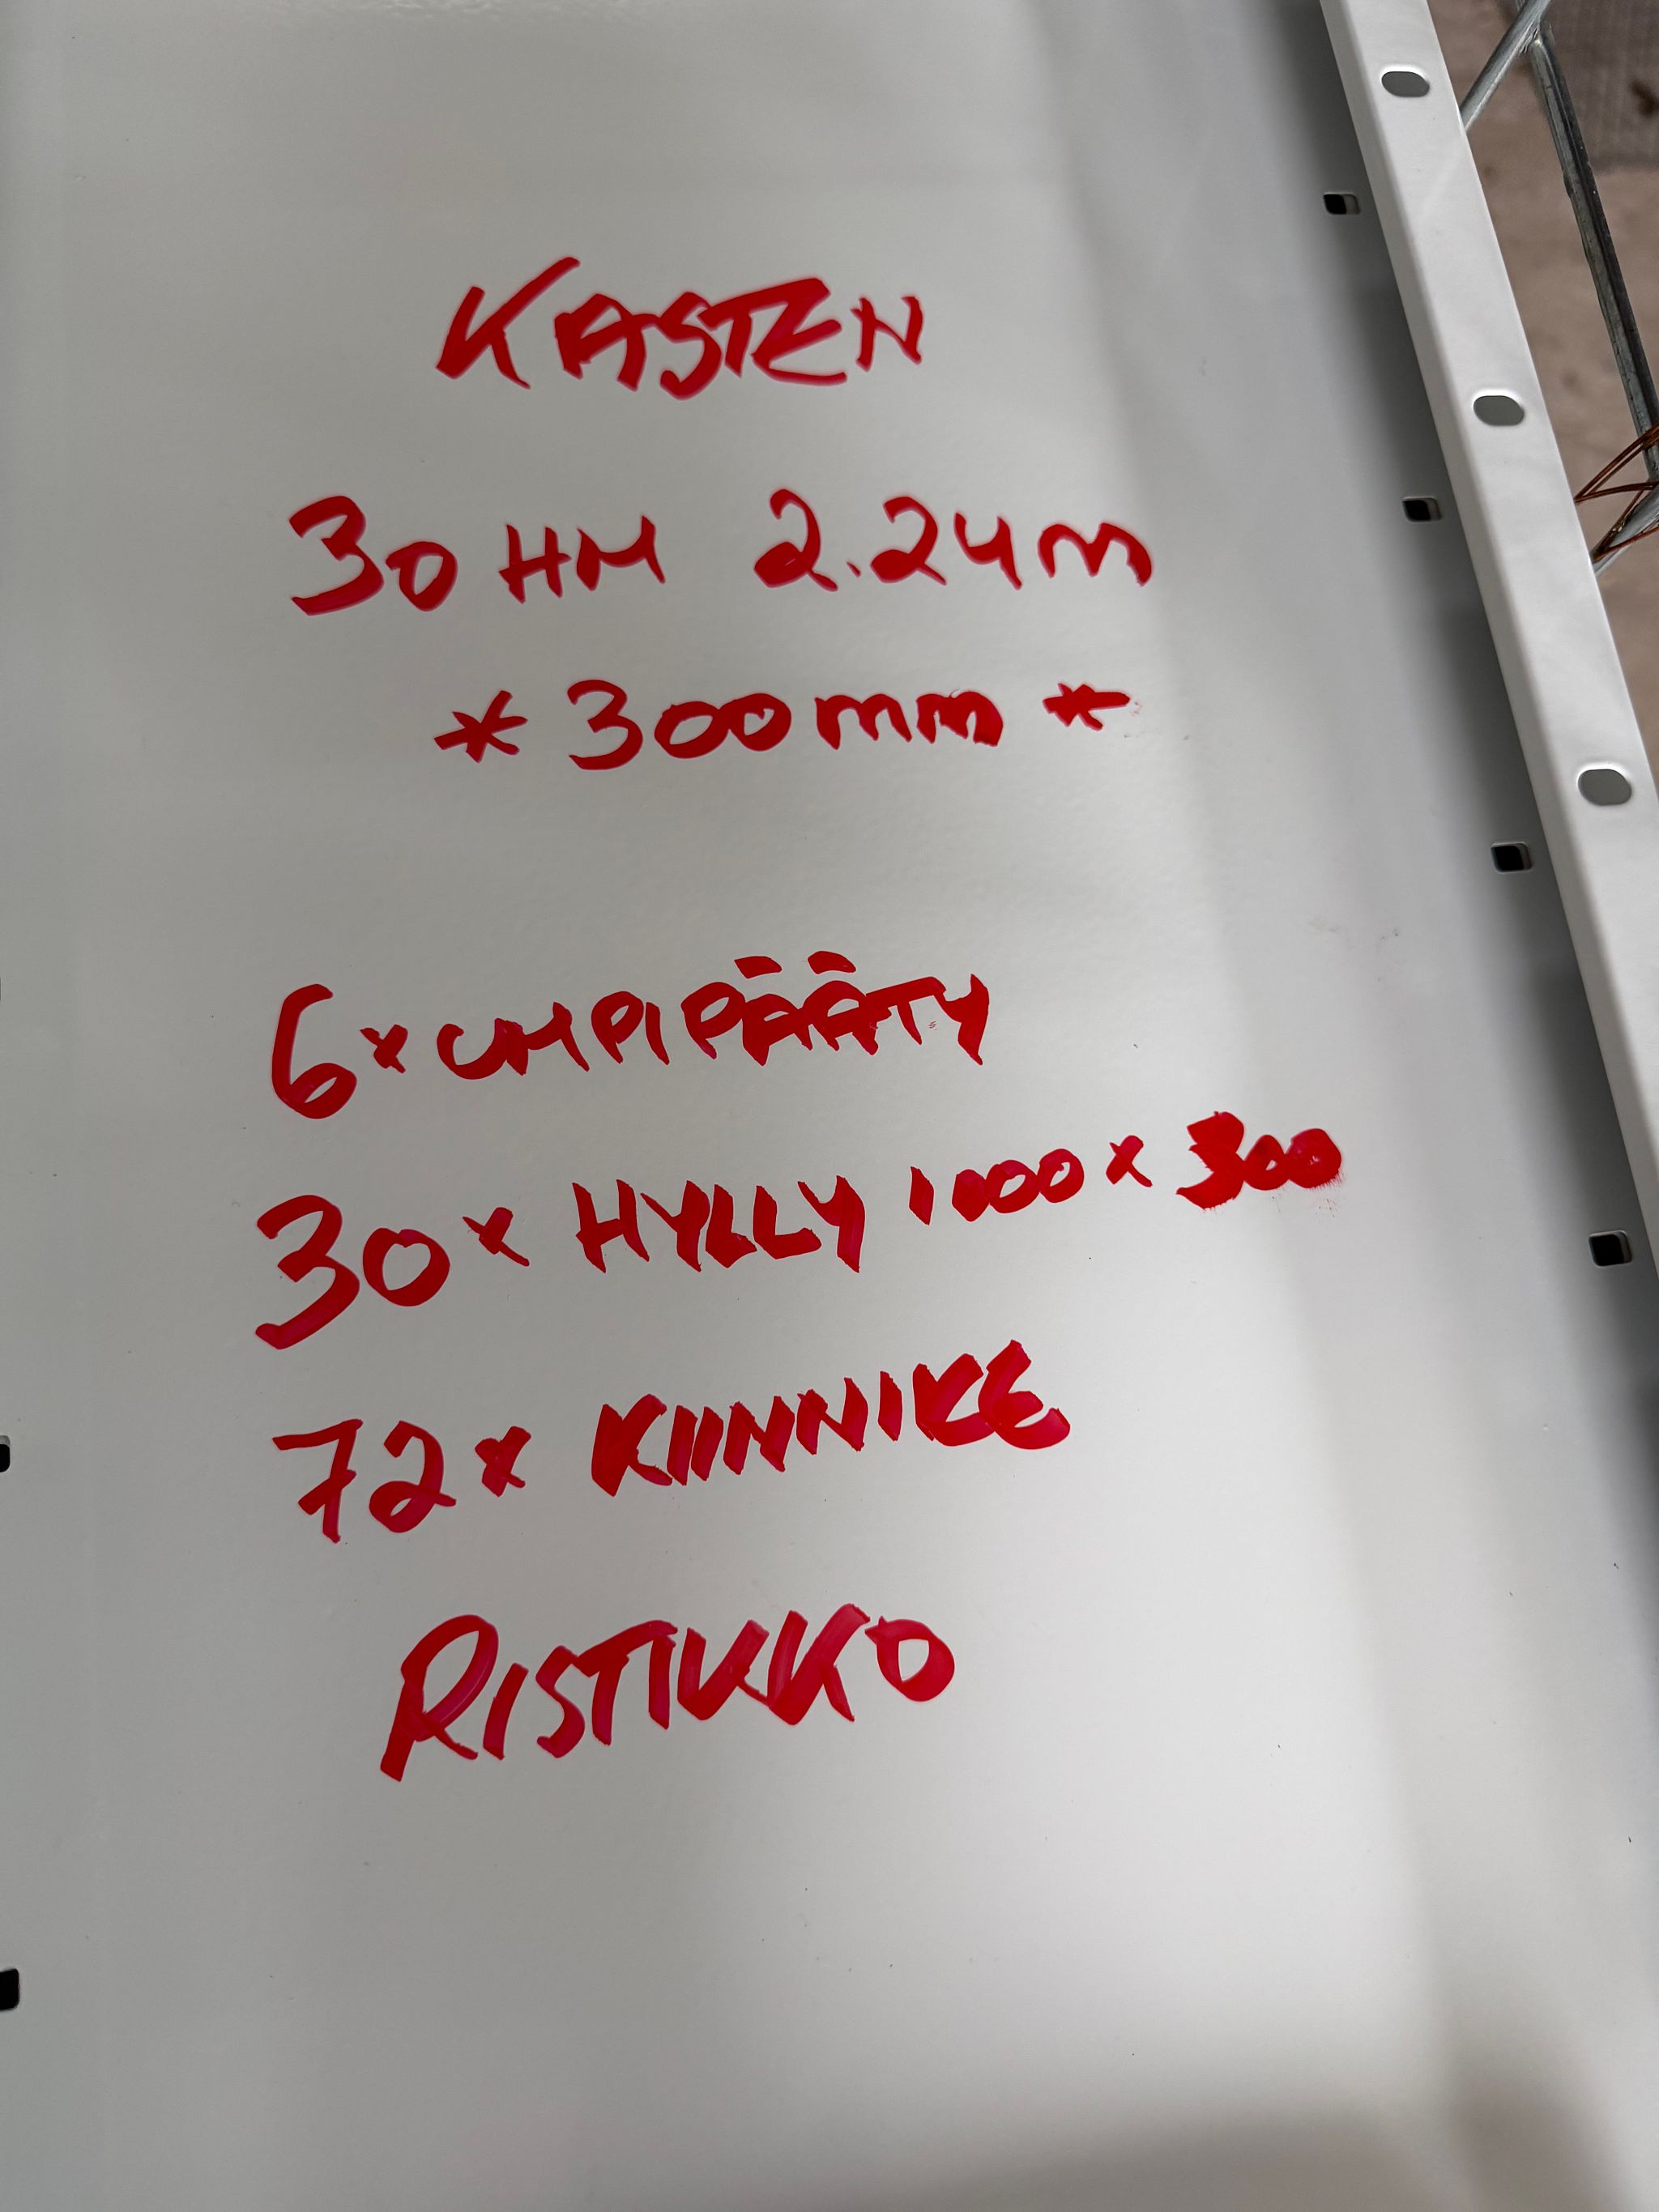 KASTEN
30 HM 2.24m
* 300mm *
6x UMPIPÄÄTY
30x HYLLY 1000 x 300
72x KIINNIKE
RISTIKKO